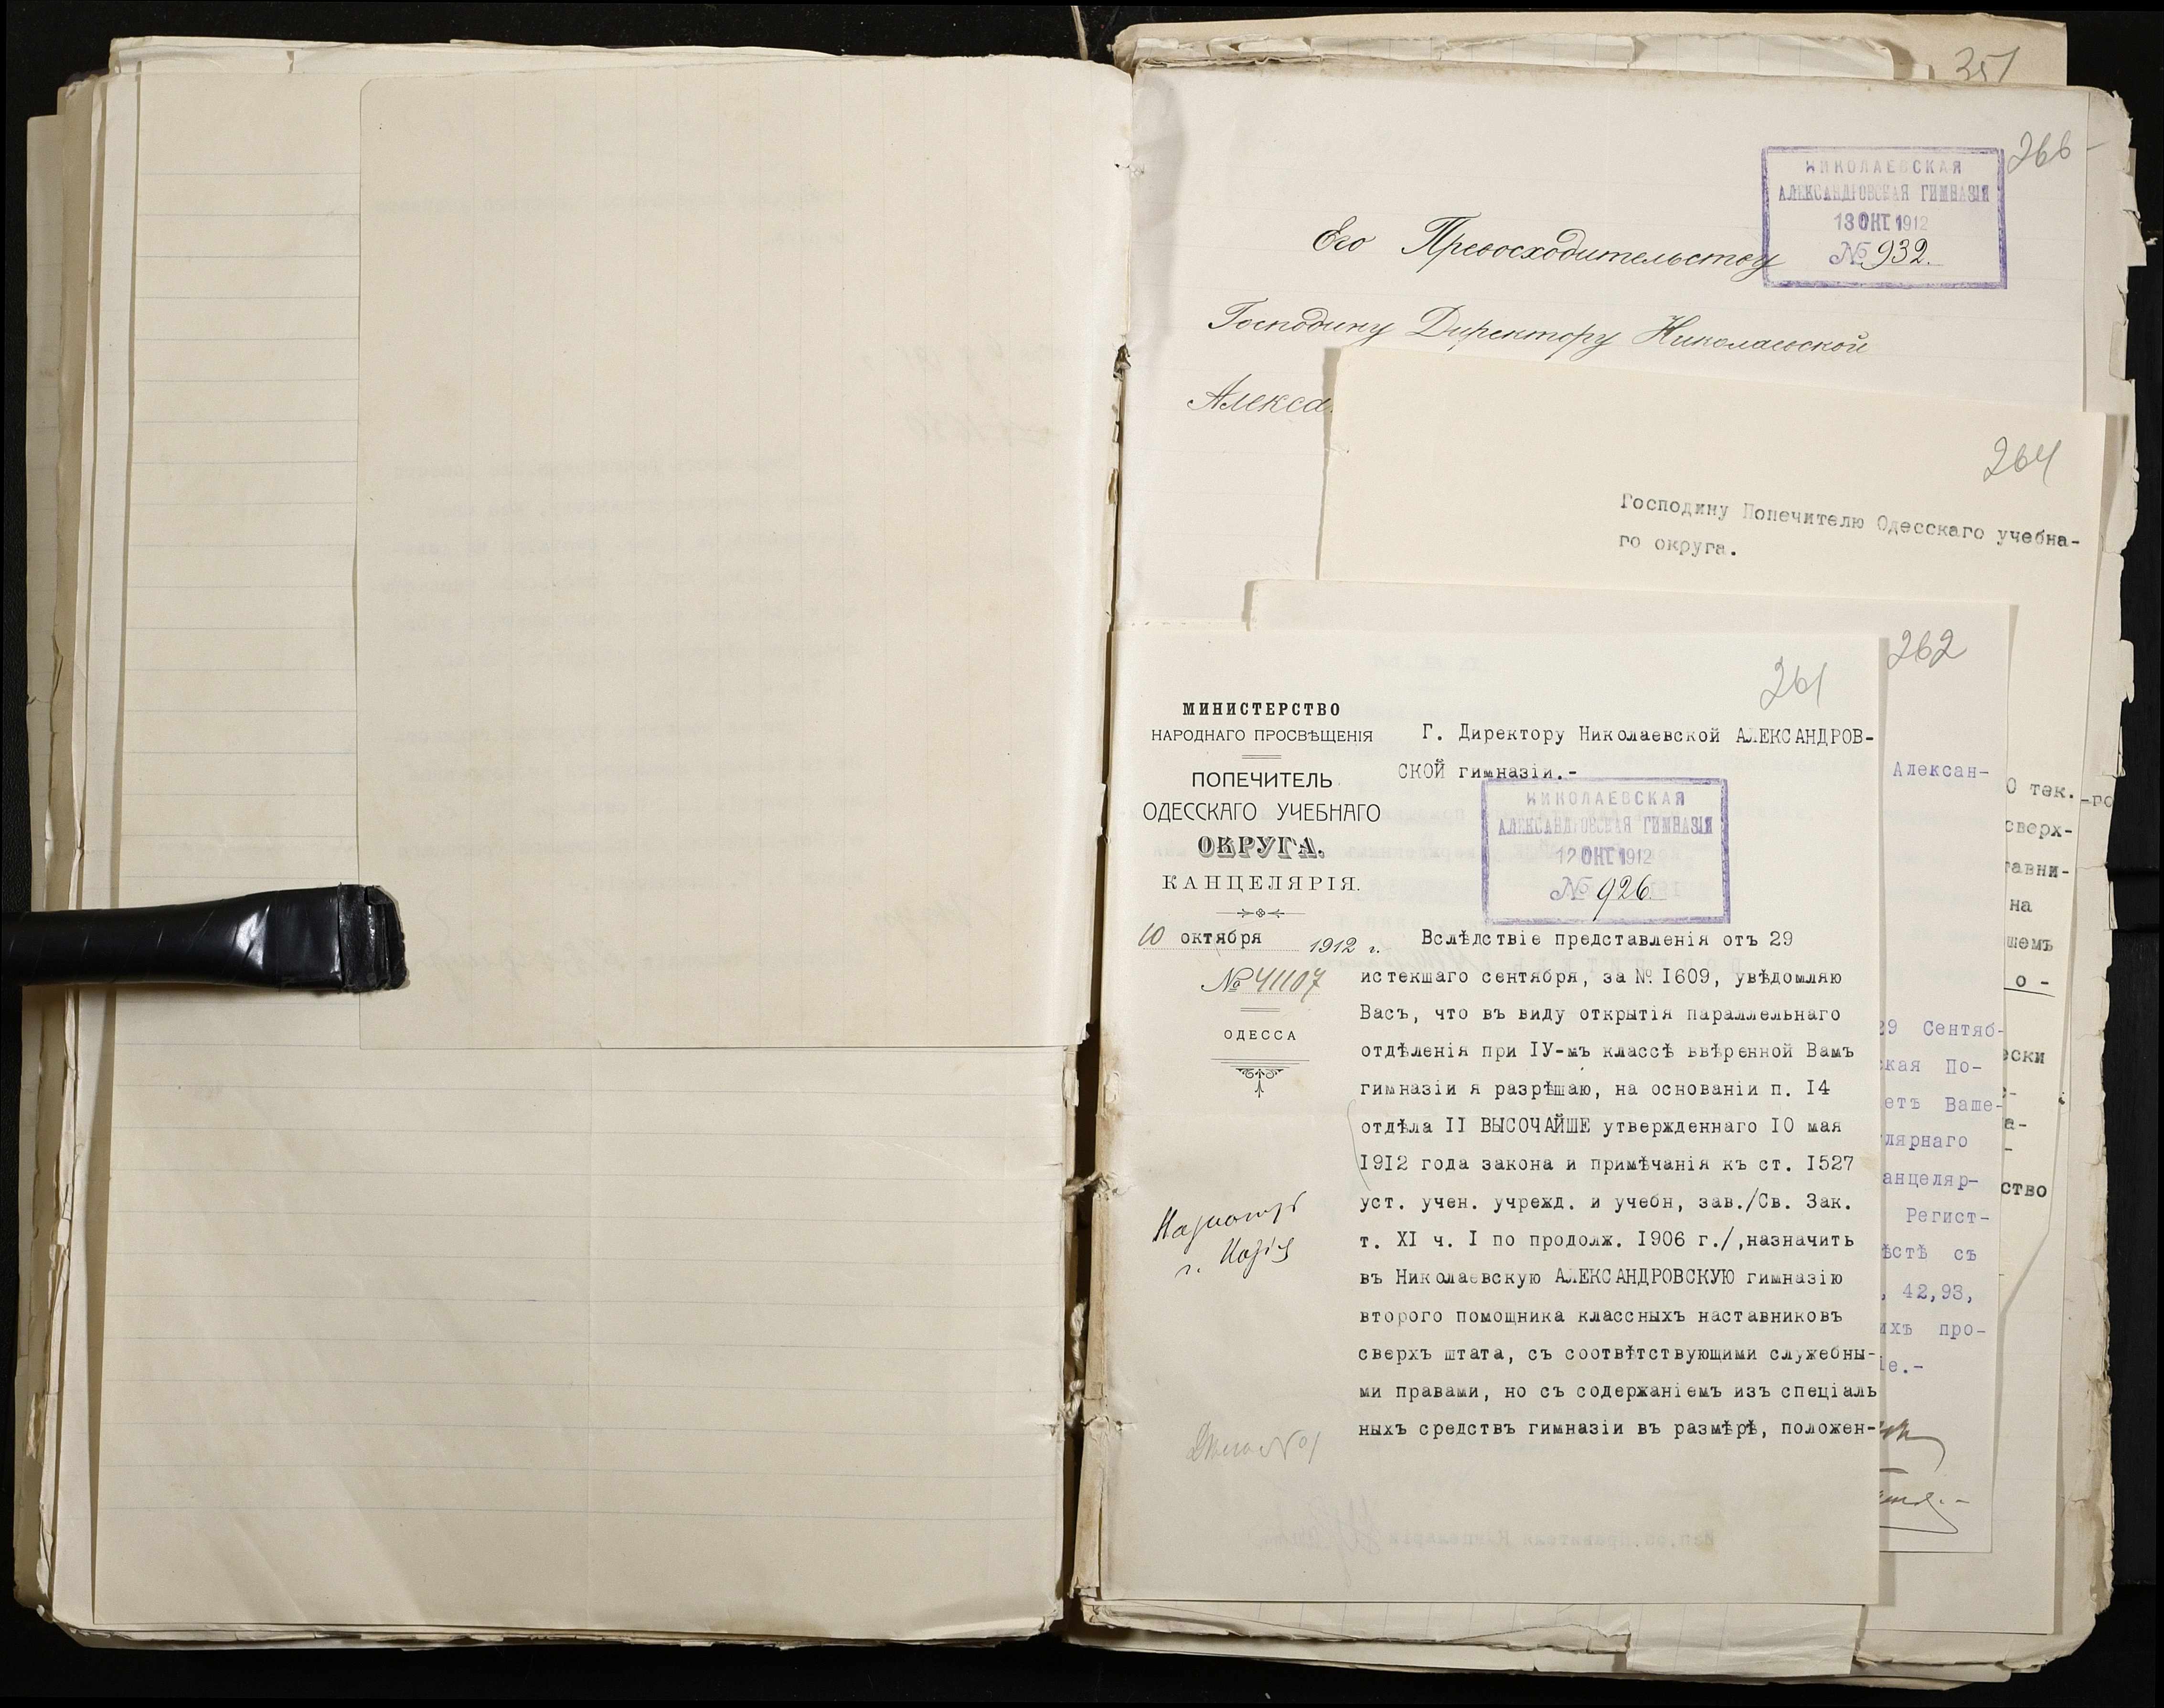 351
266
НИКОЛАЕВСКАЯ
АЛЕКСАНДРОВСКАЯ ГИМНАЗІЯ
13 ОКТ 1912
№ 932.
Его Превосходительству
Господину Директору Николаевской
Алекса
264
Господину Попечителю Одесскаго учебна-
го округа.
262
Алексан-
О тек.
-го
сверх-
тавни-
на
шемъ
о -
29 Сентяб-
ески
ская По-
етъ Ваше-
а-
лярнаго
анцеляр-
ство
Регист-
ѣстѣ съ
, 42,93,
ихъ про-
іе.-
261
МИНИСТЕРСТВО
НАРОДНАГО ПРОСВѢЩЕНІЯ
ПОПЕЧИТЕЛЬ
ОДЕССКАГО УЧЕБНАГО
ОКРУГА.
КАНЦЕЛЯРІЯ.
10 октября 1912 г.
№ 41107
ОДЕССА
Г. Директору Николаевской АЛЕКСАНДРОВ-
СКОЙ гимназіи.-
НИКОЛАЕВСКАЯ
АЛЕКСАНДРОВСКАЯ ГИМНАЗІЯ
12 ОКТ 1912
№ 926.
Вслѣдствіе представленія отъ 29
истекшаго сентября, за № I609, увѣдомляю
Васъ, что въ виду открытія параллельнаго
отдѣленія при IУ-мъ классѣ ввѣренной Вамъ
гимназіи я разрѣшаю, на основаніи п. I4
отдѣла II ВЫСОЧАЙШЕ утвержденнаго IO мая
I9I2 года закона и примѣчанія къ ст. I527
уст. учен. учрежд. и учебн, зав./Св. Зак.
т. XI ч. I по продолж. I906 г./,назначить
въ Николаевскую АЛЕКСАНДРОВСКУЮ гимназію
второго помощника классныхъ наставниковъ
сверхъ штата, съ соотвѣтствующими служебны-
ми правами, но съ содержаніемъ изъ спеціаль
ныхъ средствъ гимназіи въ размѣрѣ, положен-